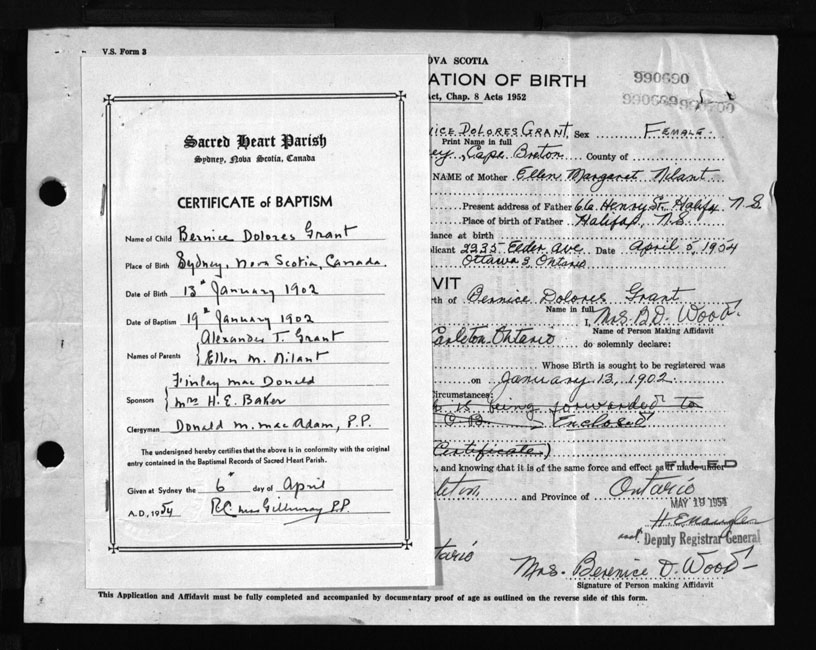 V.S. Form 3
Sacred Heart Parish
Sydney, Nova Scotia, Canada
CERTIFICATE of BAPTISM
Name of Child Bernice Dolores Grant
Place of Birth Sydney, Nova Scotia, Canada.
Date of Birth 13th January 1902
Date of Baptism 19th January 1902
Names of Parents { Alexander T. Grant
Ellen M. Nilant
Sponsors { Finlay Mac Donald
Mrs H. E. Baker
Clergyman Donald M. MacAdam, P.P.
The undersigned hereby certifies that the above is in conformity with the original
entry contained in the Baptismal Records of Sacred Heart Parish.
Given at Sydney the 6th day of April
A.D., 1954 P.P.
OVA SCOTIA
ATION OF BIRTH
Act, Chap. 8 Acts 1952
990690
990689
NICE DOLORES GRANT Sex FEMALE.
Print Name in full
ey, Cape Breton County of
NAME of Mother Ellen Margaret Nilant
Present address of Father 66 Henry St. Halifax N.S.
Place of birth of Father Halifax, N.S.
dance at birth
plicant 2235 Elder Ave. Date April 5, 1954
Ottawa 3, Ontario
VIT
rth of Bernice Dolores Grant
Name in full
I, Mrs. B.D. Wood.
Name of Person Making Affidavit
Carleton Ontario do solemnly declare:
Whose Birth is sought to be registered was
on January 13, 1902.
Circumstances:
it is being forwarded to
Enclosed
Certificate)
e, and knowing that it is of the same force and effect as if made under
FILED
leton and Province of Ontario
MAY 19 1954
asst. Deputy Registrar General
tario
Mrs. Berenice D. Wood
Signature of Person making Affidavit
This Application and Affidavit must be fully completed and accompanied by documentary proof of age as outlined on the reverse side of this form.